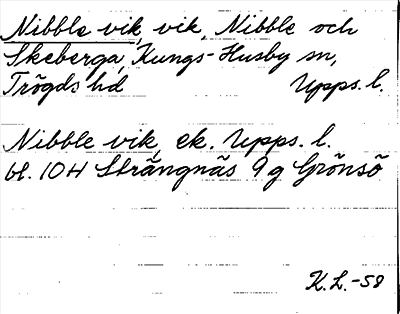 Nibble vik, vik, Nibble och
Skeberga, Kungs-Husby sn,
Trögds hd Upps. l.
Nibble vik, ek. Upps. l.
bl. 104 Strängnäs 9 g Grönsö
K.L.-58